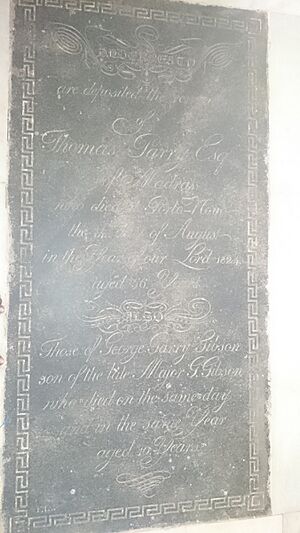 are deposited the
of
Thomas Parry Esq
of Madras
who died at Porto Novo
the of August
in the Year of our Lord 1824
aged 56 Years
ALSO
Those of George Parry Gibson
son of the late Major G. Gibson
who died on the same day
and in the same Year
aged Years